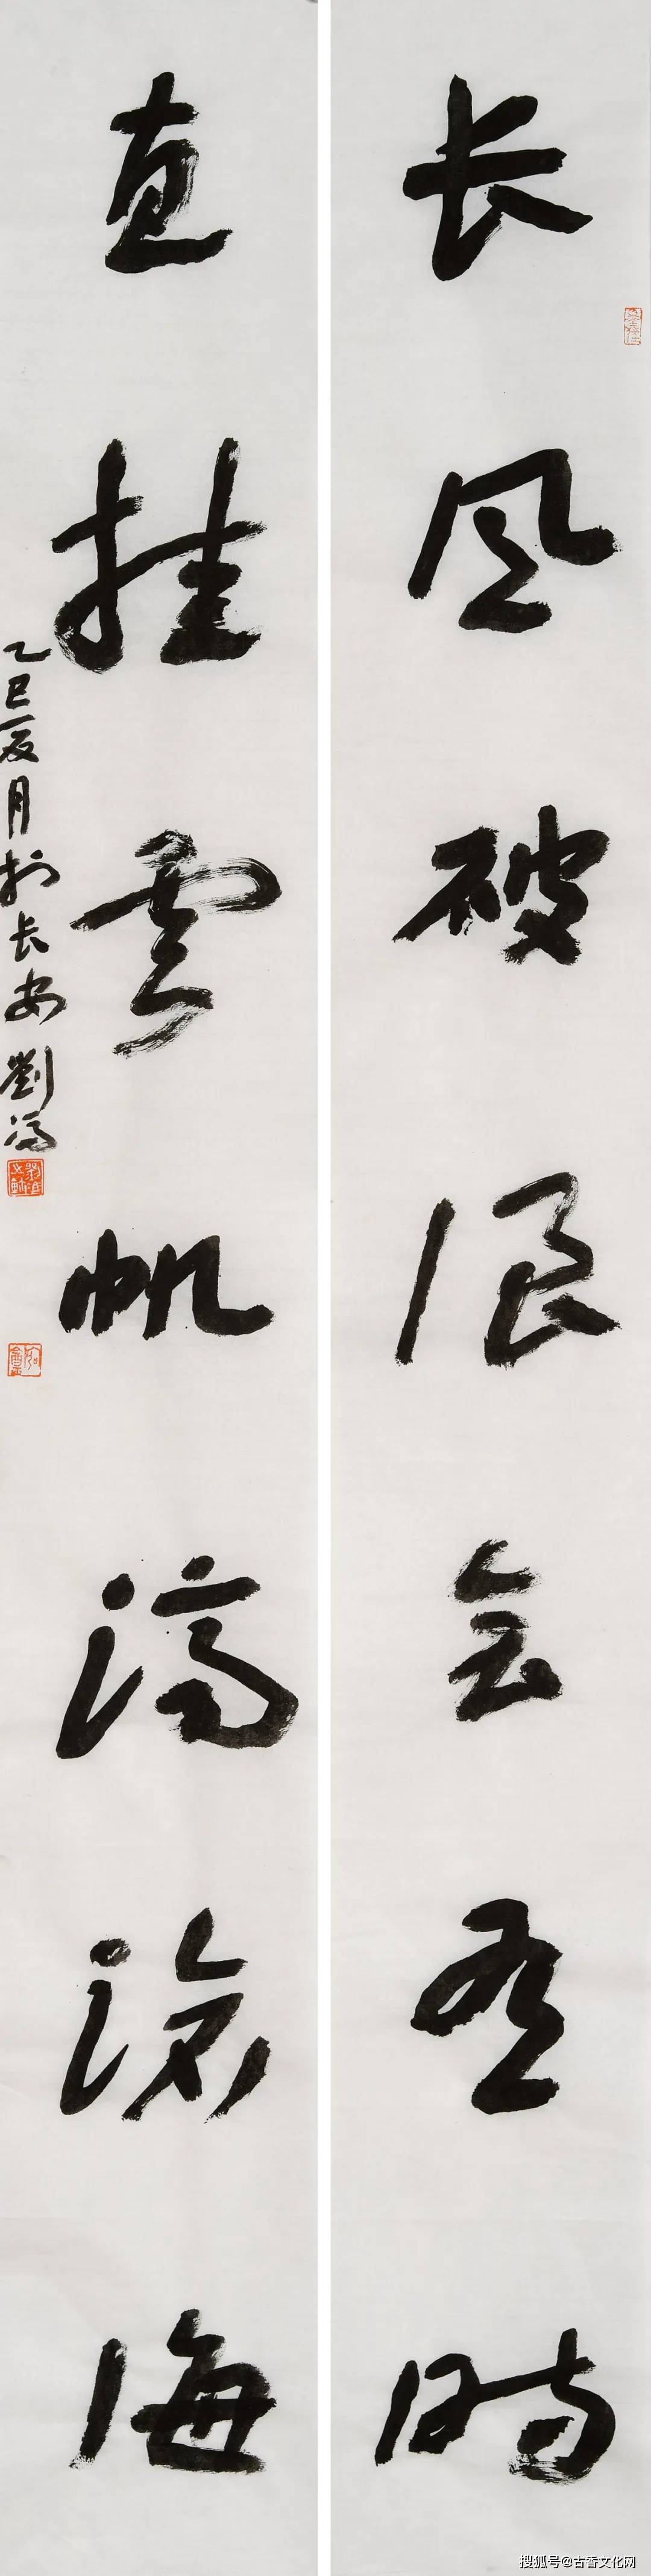 长风破浪会有时
直挂雲帆济沧海
乙巳夏月於长安劉
搜狐号@古香文化网